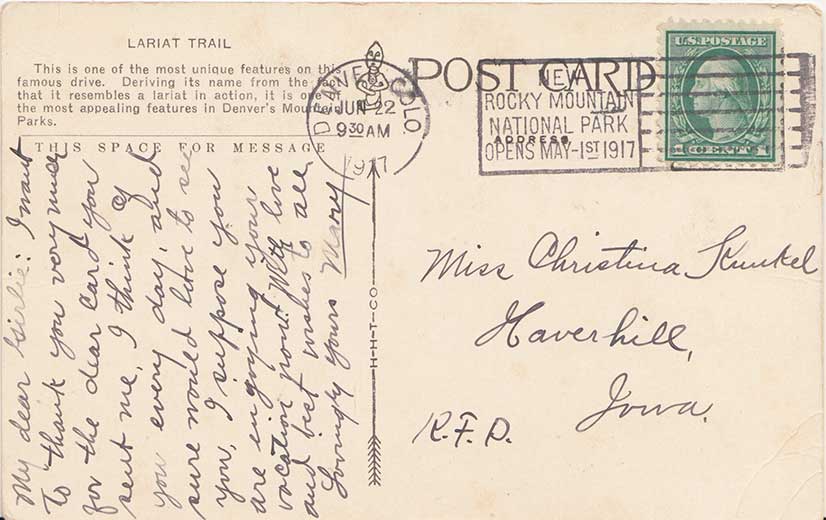 LARIAT TRAIL
This is one of the most unique features on this
famous drive. Deriving its name from the fact
that it resembles a lariat in action, it is one of
the most appealing features in Denver's Mountain
Parks.
THIS SPACE FOR MESSAGE
POST CARD
ADDRESS
DENVER COLO.
JUN 22
9 30 AM
1917
NEW
ROCKY MOUNTAIN
NATIONAL PARK
OPENS MAY-1ST 1917
U.S. POSTAGE
CENTS
My dear Girlie: I want
to thank you very much
for the dear card you
sent me, I think of
you every day, and
sure would love to see
you, I suppose you
are enjoying your
vacation now. With love
and best wishes to all
Lovingly yours Mary
H-H-T-CO
Miss Christina Kunkel
Haverhill,
Iowa.
R.F.D.